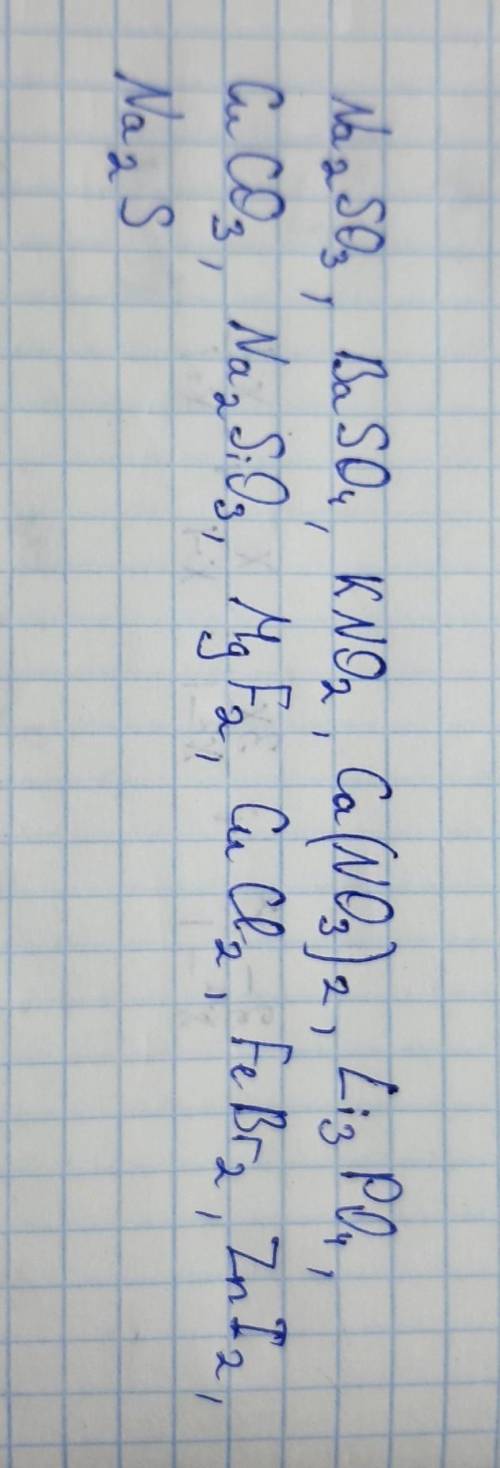 Na₂SO₃, BaSO₄, KNO₂, Ca(NO₃)₂, Li₃PO₄,
CuCO₃, Na₂SiO₃, MgF₂, CuCl₂, FeBr₂, ZnI₂,
Na₂S